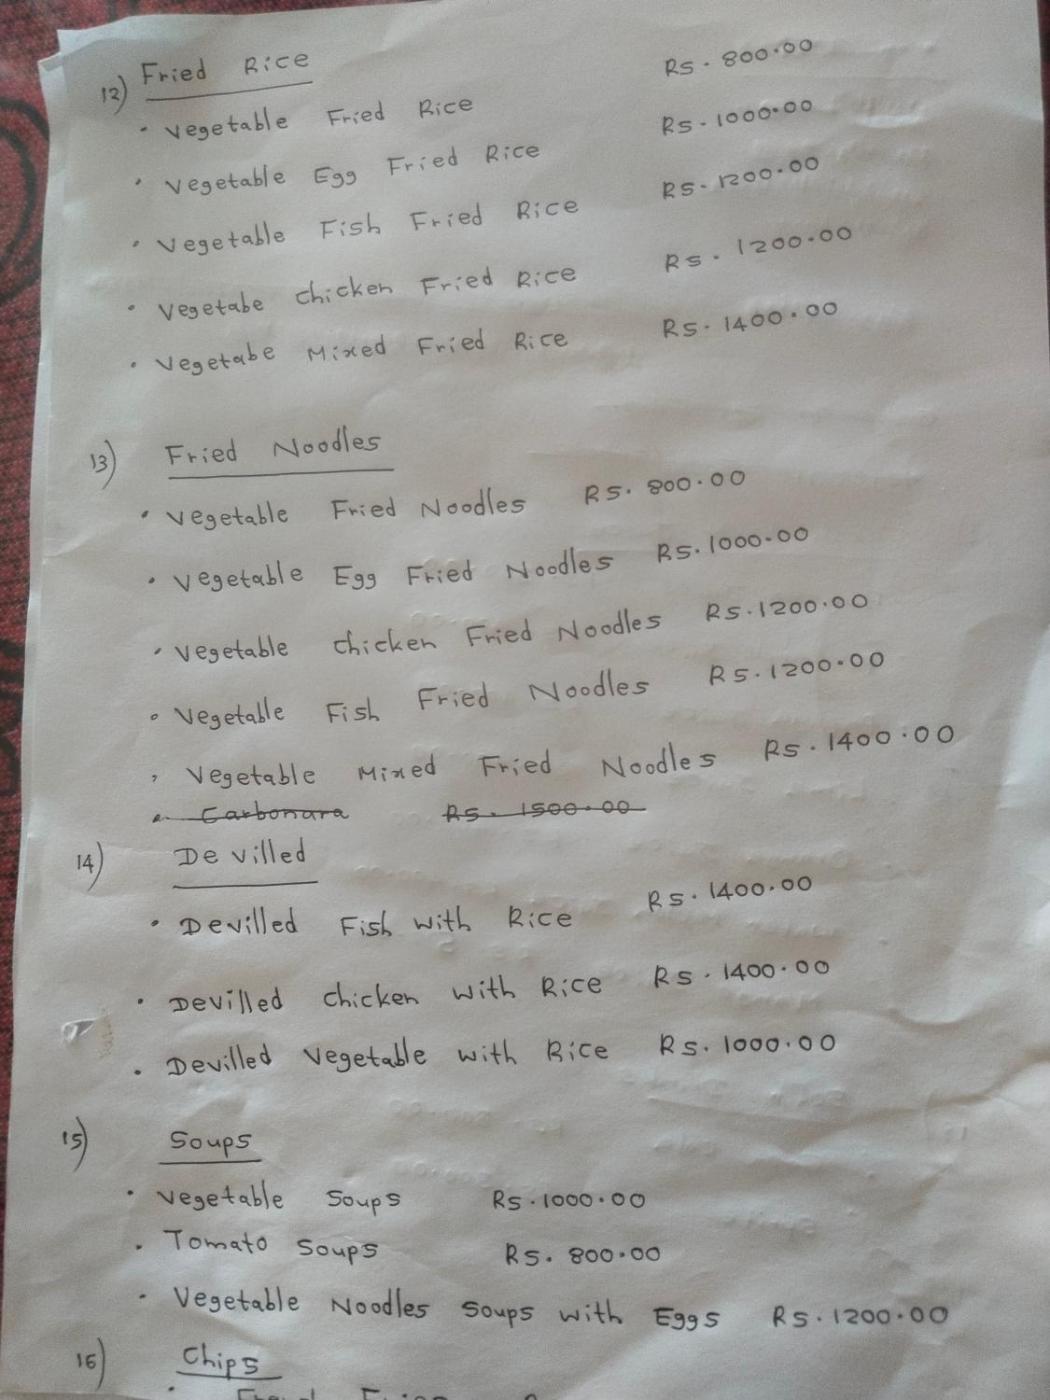 12) Fried Rice
• Vegetable Fried Rice Rs. 800.00
• Vegetable Egg Fried Rice Rs. 1000.00
• Vegetable Fish Fried Rice Rs. 1200.00
• Vegetabe Chicken Fried Rice Rs. 1200.00
• Vegetabe Mixed Fried Rice Rs. 1400.00
13) Fried Noodles
• Vegetable Fried Noodles Rs. 800.00
• Vegetable Egg Fried Noodles Rs. 1000.00
• Vegetable Chicken Fried Noodles Rs. 1200.00
• Vegetable Fish Fried Noodles Rs. 1200.00
• Vegetable Mixed Fried Noodles Rs. 1400.00
• Carbonara Rs. 1500.00
14) Devilled
• Devilled Fish with Rice Rs. 1400.00
• Devilled Chicken with Rice Rs. 1400.00
• Devilled Vegetable with Rice Rs. 1000.00
15) Soups
• Vegetable Soups Rs. 1000.00
• Tomato Soups Rs. 800.00
• Vegetable Noodles Soups with Eggs Rs. 1200.00
16) Chips